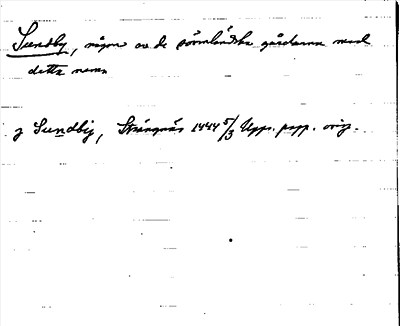 Sundby, någon av de sörmländska gårdarna med
detta namn
j Sundby, Strängnäs 1444 5/3 Upps. papp. orig.